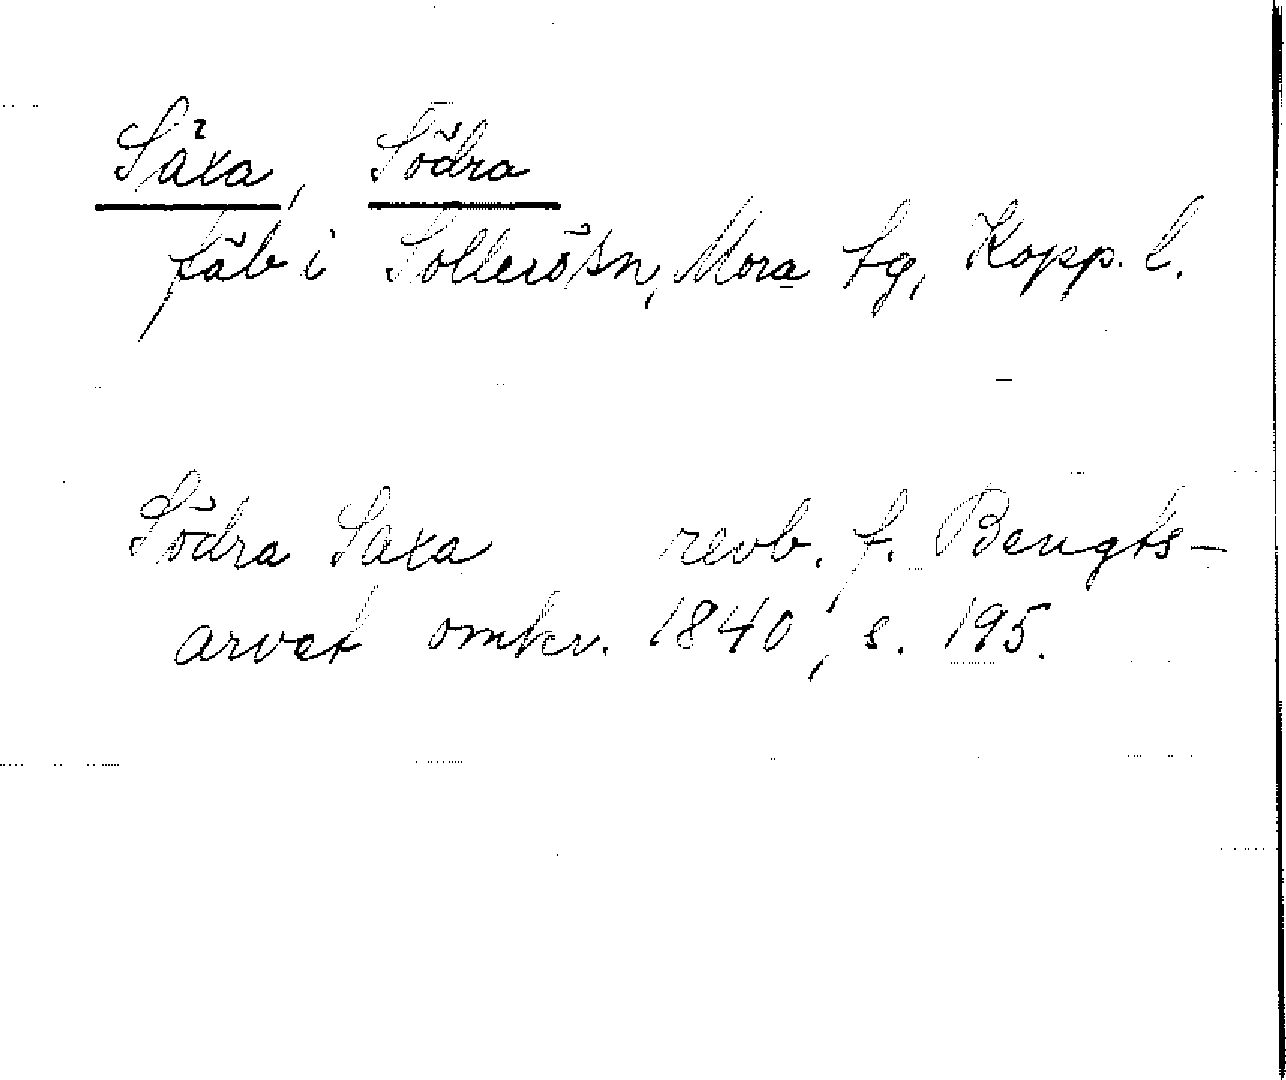 Säxa, Södra
fäb i Sollerö sn, Mora tg, Kopp. l.
Södra Saxa revb. f. Bengts-
arvet omkr. 1840, s. 195.